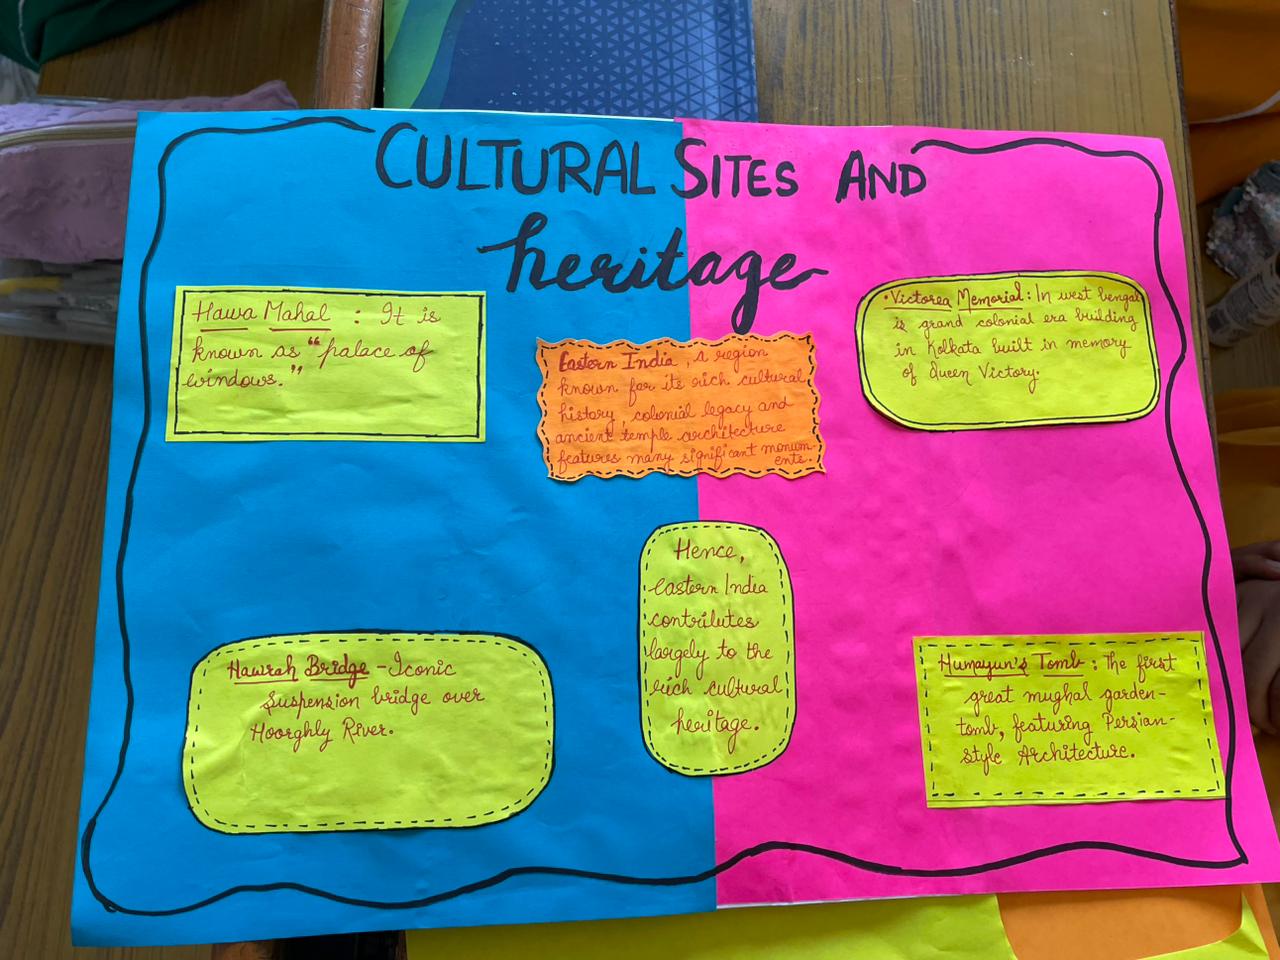 CULTURAL SITES AND
heritage
Hawa Mahal : It is
known as "palace of
windows."
Eastern India, a region
known for its rich cultural
history, colonial legacy and
ancient temple architecture
features many significant monum-
ents.
• Victorea Memorial: In west bengal
is grand colonial era building
in Kolkata built in memory
of Queen Victory.
Hence,
Eastern India
contributes
largely to the
rich cultural
heritage.
Hawrah Bridge - Iconic
Suspension bridge over
Hoorghly River.
Humayun's Tomb : The first
great mughal garden-
tomb, featuring Persian-
style Architecture.